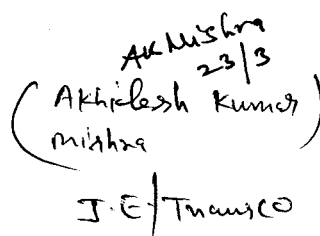 AK Mishra
23/3
(Akhilesh Kumar
Mishra)
J.E/Transco